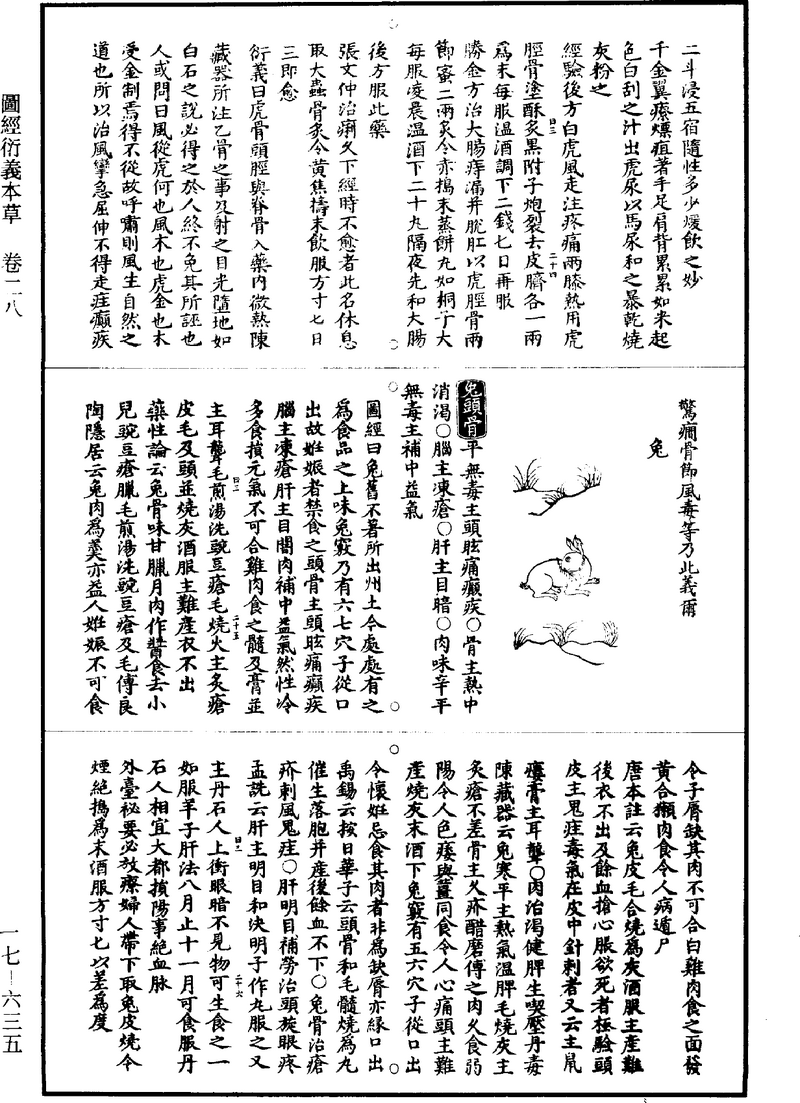 圖經衍義本草　卷二八
二斗浸五宿隨性多少煖飲之妙
千金翼瘭㾦疽著手足肩背累累如米起
色白刮之汁出虎尿以馬尿和之暴乾燒
灰粉之
經驗後方白虎風走注疼痛兩膝熱用虎
脛骨塗酥炙黑附子炮裂去皮臍各一兩
爲末每服温酒調下二錢匕日再服
勝金方治大腸痔漏并脫肛以虎脛骨兩
節蜜二兩炙令赤搗末蒸餅丸如桐子大
每服凌晨温酒下二十丸隔夜先和大腸
後方服此藥
張文仲治痢久下經時不愈者此名休息
取大蟲骨炙令黄焦擣末飲服方寸匕日
三即愈
衍義曰虎骨頭脛與脊骨入藥肉微熱陳
藏器所注乙骨之事及射之目光墮地如
白石之說必得之於人終不免其所誣也
人或問曰風從虎何也風木也虎金也木
受金制焉得不從故呼嘯則風生自然之
道也所以治風攣急屈伸不得走疰癲疾
驚癇骨節風毒等乃此義爾
兔
兔頭骨平無毒主頭眩痛癲疾○骨主熱中
消渴○腦主凍瘡○肝主目暗○肉味辛平
無毒主補中益氣
圖經曰兔舊不著所出州土今處處有之
爲食品之上味兔竅乃有六七穴子從口
出故姙娠者禁食之頭骨主頭眩痛癲疾
腦主凍瘡肝主目闇肉補中益氣然性冷
多食損元氣不可合雞肉食之髓及膏並
主耳聾毛煎湯洗豌豆瘡毛燒火主炙瘡
皮毛及頭並燒灰酒服主難產衣不出
藥性論云兔骨味甘臘月肉作醬食去小
兒豌豆瘡臘毛煎湯洗豌豆瘡及毛傅良
陶隱居云兔肉爲羹亦益人姙娠不可食
令子脣缺其肉不可合白雞肉食之面發
黄合獺肉食令人病遁尸
唐本註云兔皮毛合燒爲灰酒服主產難
後衣不出及餘血搶心脹欲死者極驗頭
皮主鬼疰毒氣在皮中針刺者又云主鼠
瘻膏主耳聾○肉治渴健脾生喫壓丹毒
陳藏器云兔寒平主熱氣温脾毛燒灰主
炙瘡不差骨主久疥醋磨傅之肉久食弱
陽令人色痿與薑同食令人心痛頭主難
產燒灰末酒下兔竅有五六穴子從口出
今懷姙忌食其肉者非爲缺脣亦緣口出
禹錫云按日華子云頭骨和毛髓燒爲丸
催生落胞并產後餘血不下○兔骨治瘡
疥刺風鬼疰○肝明目補勞治頭旋眼疼
孟詵云肝主明目和決明子作丸服之又
主丹石人上衝眼暗不見物可生食之一
如服羊子肝法八月止十一月可食服丹
石人相宜大都損陽事絶血脉
外臺祕要必放療婦人帶下取兔皮燒令
煙絶搗爲末酒服方寸匕以差爲度
一七－六三五